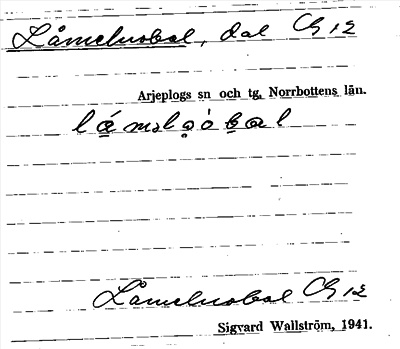 Låmelusbal, dal Ch 12
Arjeplogs sn och tg, Norrbottens län.
Låmelusbal Ch 12
Sigvard Wallström, 1941.